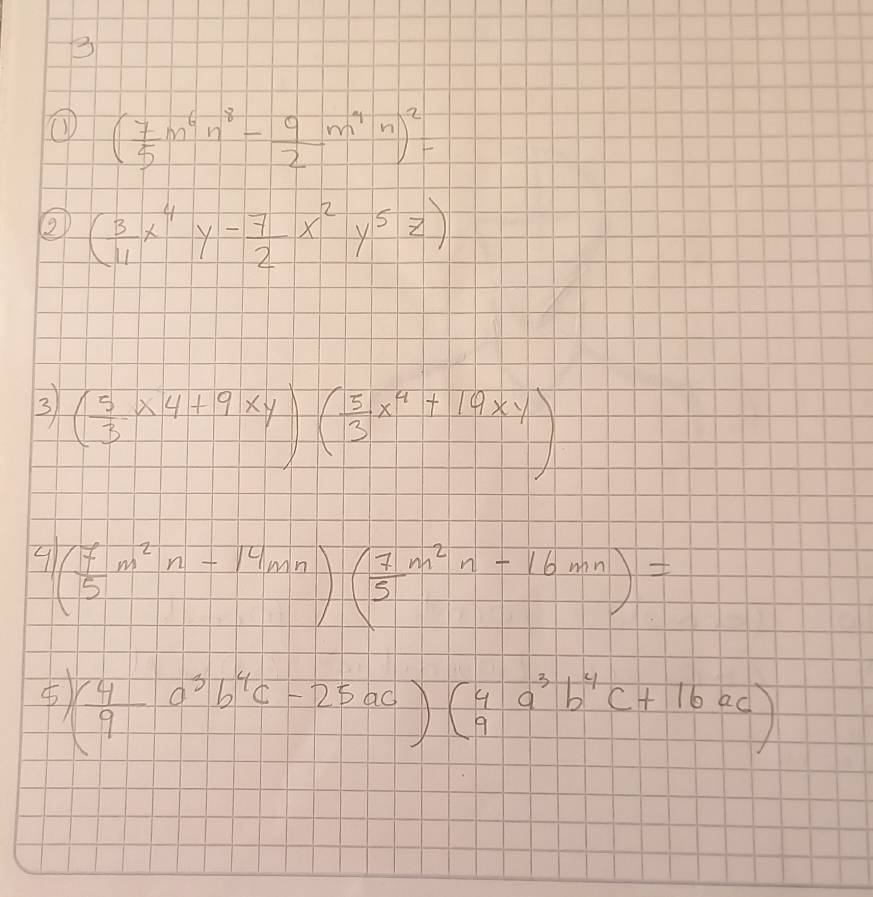 3
① (7/5 m⁶ n⁸ - 9/2 m⁴ n)² =
② (3/4 x⁴ y - 7/2 x² y⁵ z)
3) (5/3 x 4 + 9 xy) (5/3 x⁴ + 19 xy)
4) (7/5 m² n - 14 mn) (7/5 m² n - 16 mn) =
5) (4/9 a³ b⁴ c - 25 ac) (4/9 a³ b⁴ c + 16 ac)